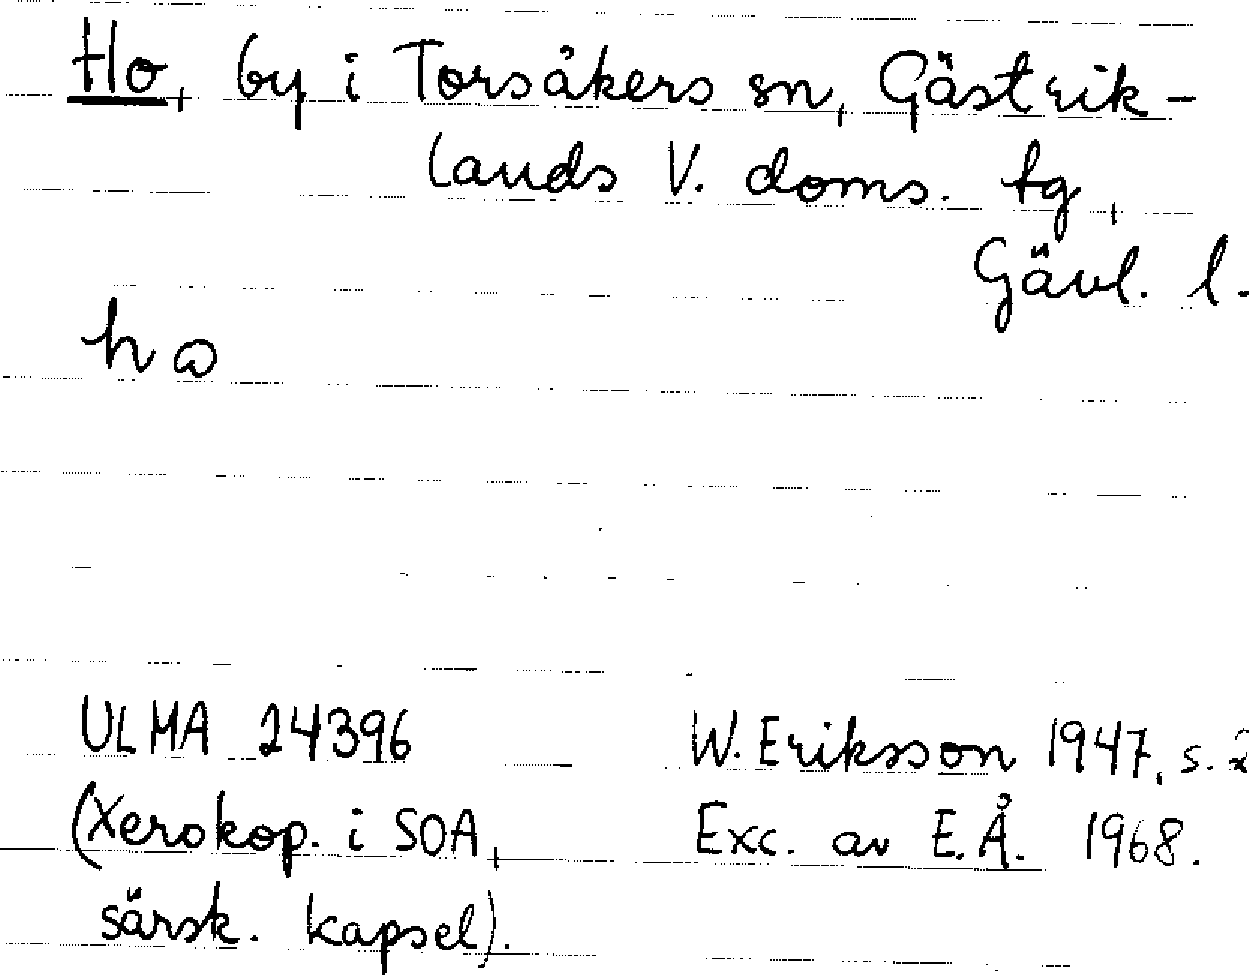 Ho, by i Torsåkers sn, Gästrik-
lands V. doms. tg,
Gävl. l.
ULMA 24396 W. Eriksson 1947, s. 2
(Xerokop. i SOA, Exc. av E.Å. 1968.
särsk. kapsel).